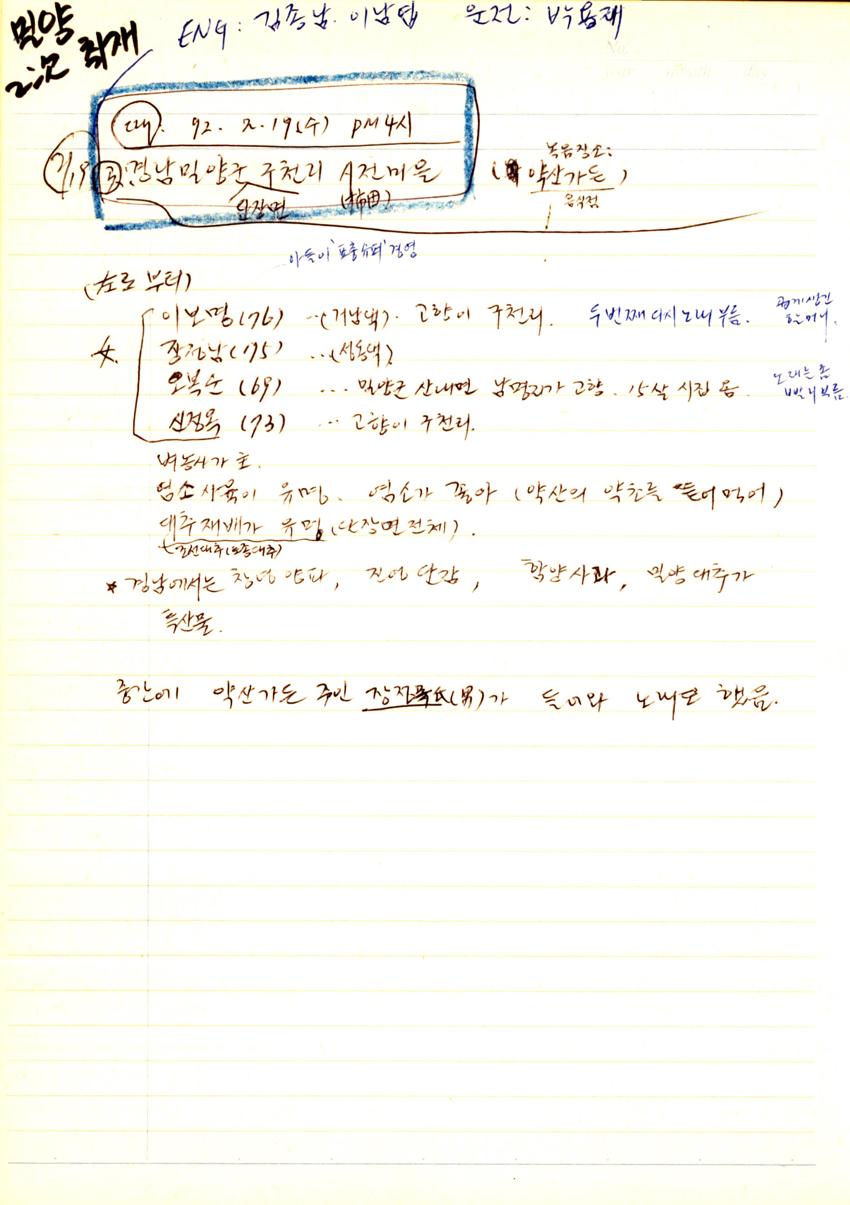 밀양
2次 취재
ENG: 김종남. 이남엽 운전: 박용재
때. 92. 2. 19(수) pM 4시
2/19 곳. 경남 밀양군 구천리 시전마을
단장면 (柿田)
녹음장소:
(약산가든)
음식점
아들이 '표충슈퍼' 경영
(左로부터)
이보명(76) ...(거남댁). 고향이 구천리. 두번째 다시 노래 부름.
할머니.
女. (75) ...
오복순 (69) ... 밀양군 산내면 남명리가 고향. 15살 시집 옴.
노래는 좀
부름.
신정옥 (73) ... 고향이 구천리.
벼농사가 主.
염소사육이 유명. 염소가 좋아 (약산의 약초를 뜯어먹어)
대추재배가 유명 (단장면 전체).
조선대추(보통대추)
* 경남에서는 창녕 양파, 진영 단감, 함양 사과, 밀양 대추가
특산물.
중간에 약산가든 주인 (男)가 들어와 노래도 했음.